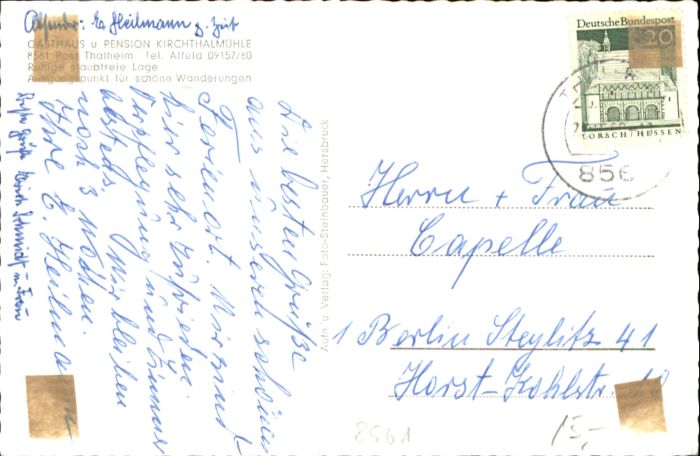 Absender: E. Heilmann z. Zeit
GASTHAUS u PENSION KIRCHTHALMÜHLE
8561 Post Thalheim Tel. Alfeld 09157/60
Ruhige staubfreie Lage
Ausgangspunkt für schöne Wanderungen
Die besten Grüße
aus unserem schönen
Ferienort. Wir sind
hier sehr zufrieden.
Verpflegung und Zimmer
Wir bleiben
noch 3 Wochen.
Ihre E. Heilmann
u. Frau
Aufn. u. Verlag: Foto-Steinbauer, Hersbruck
Deutsche Bundespost
20
LORSCH/HESSEN
856
Herrn + Frau
Capelle
1 Berlin Steglitz 41
Horst-Kohlstr.
8561
15,-